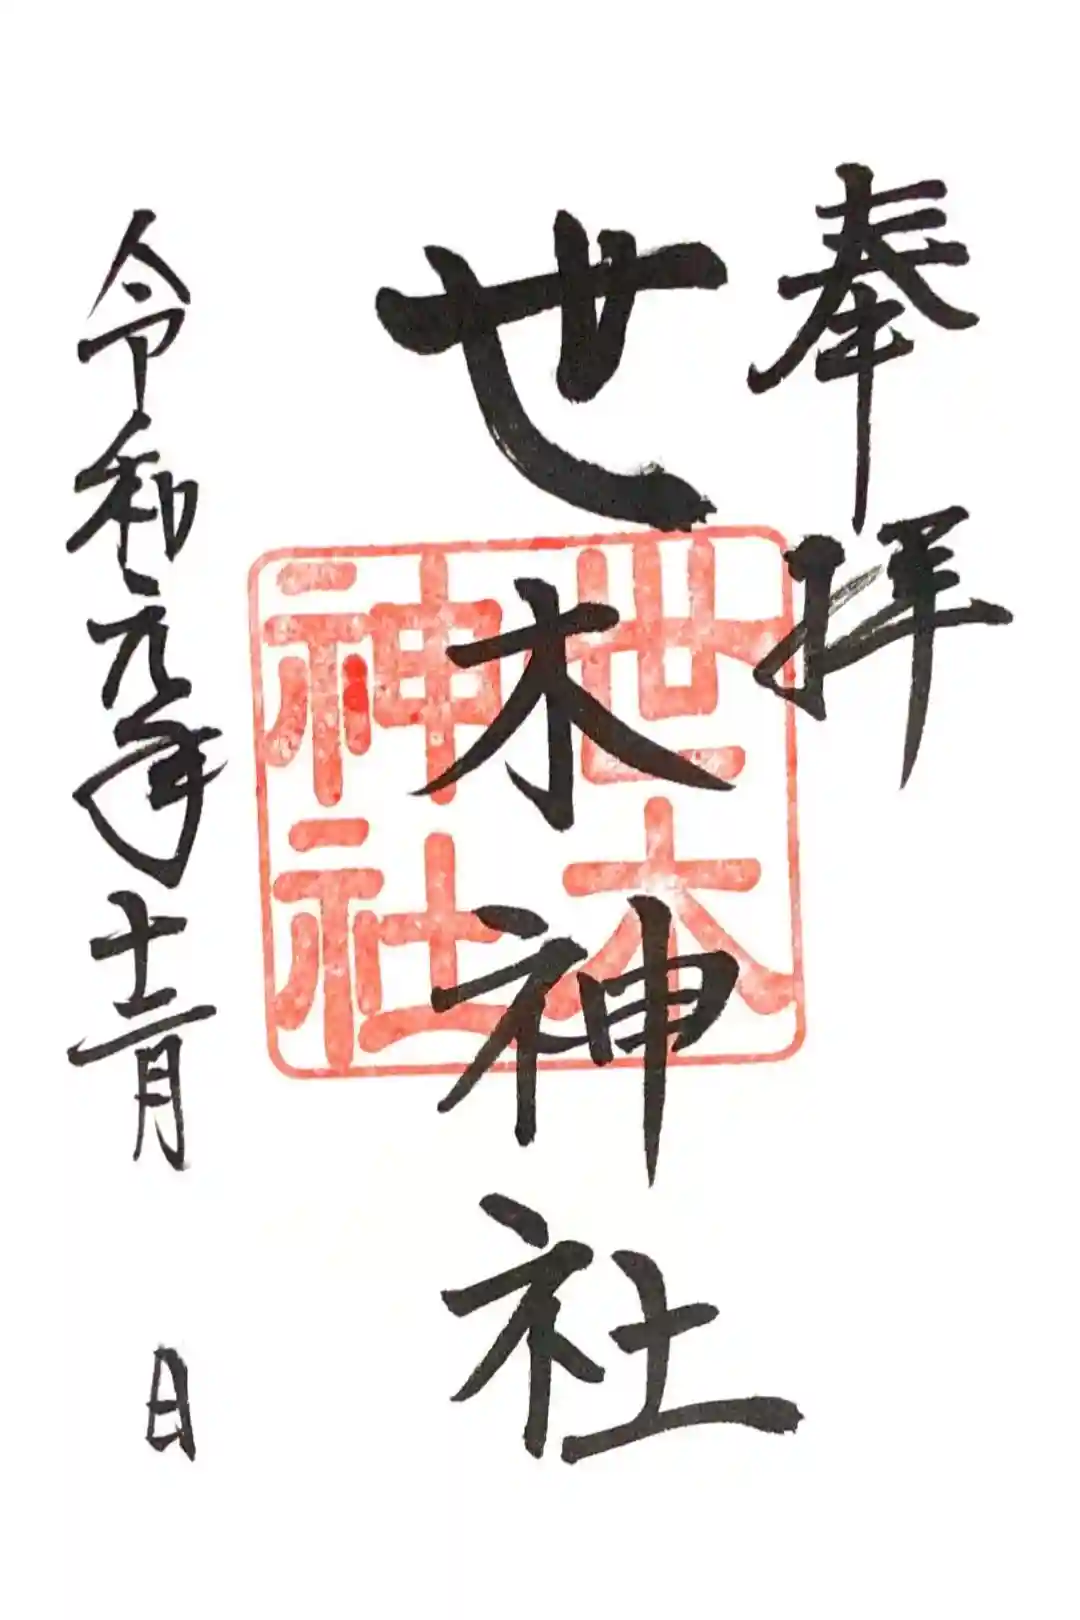 奉拝
世木神社
世木
神社
令和元年十二月 日